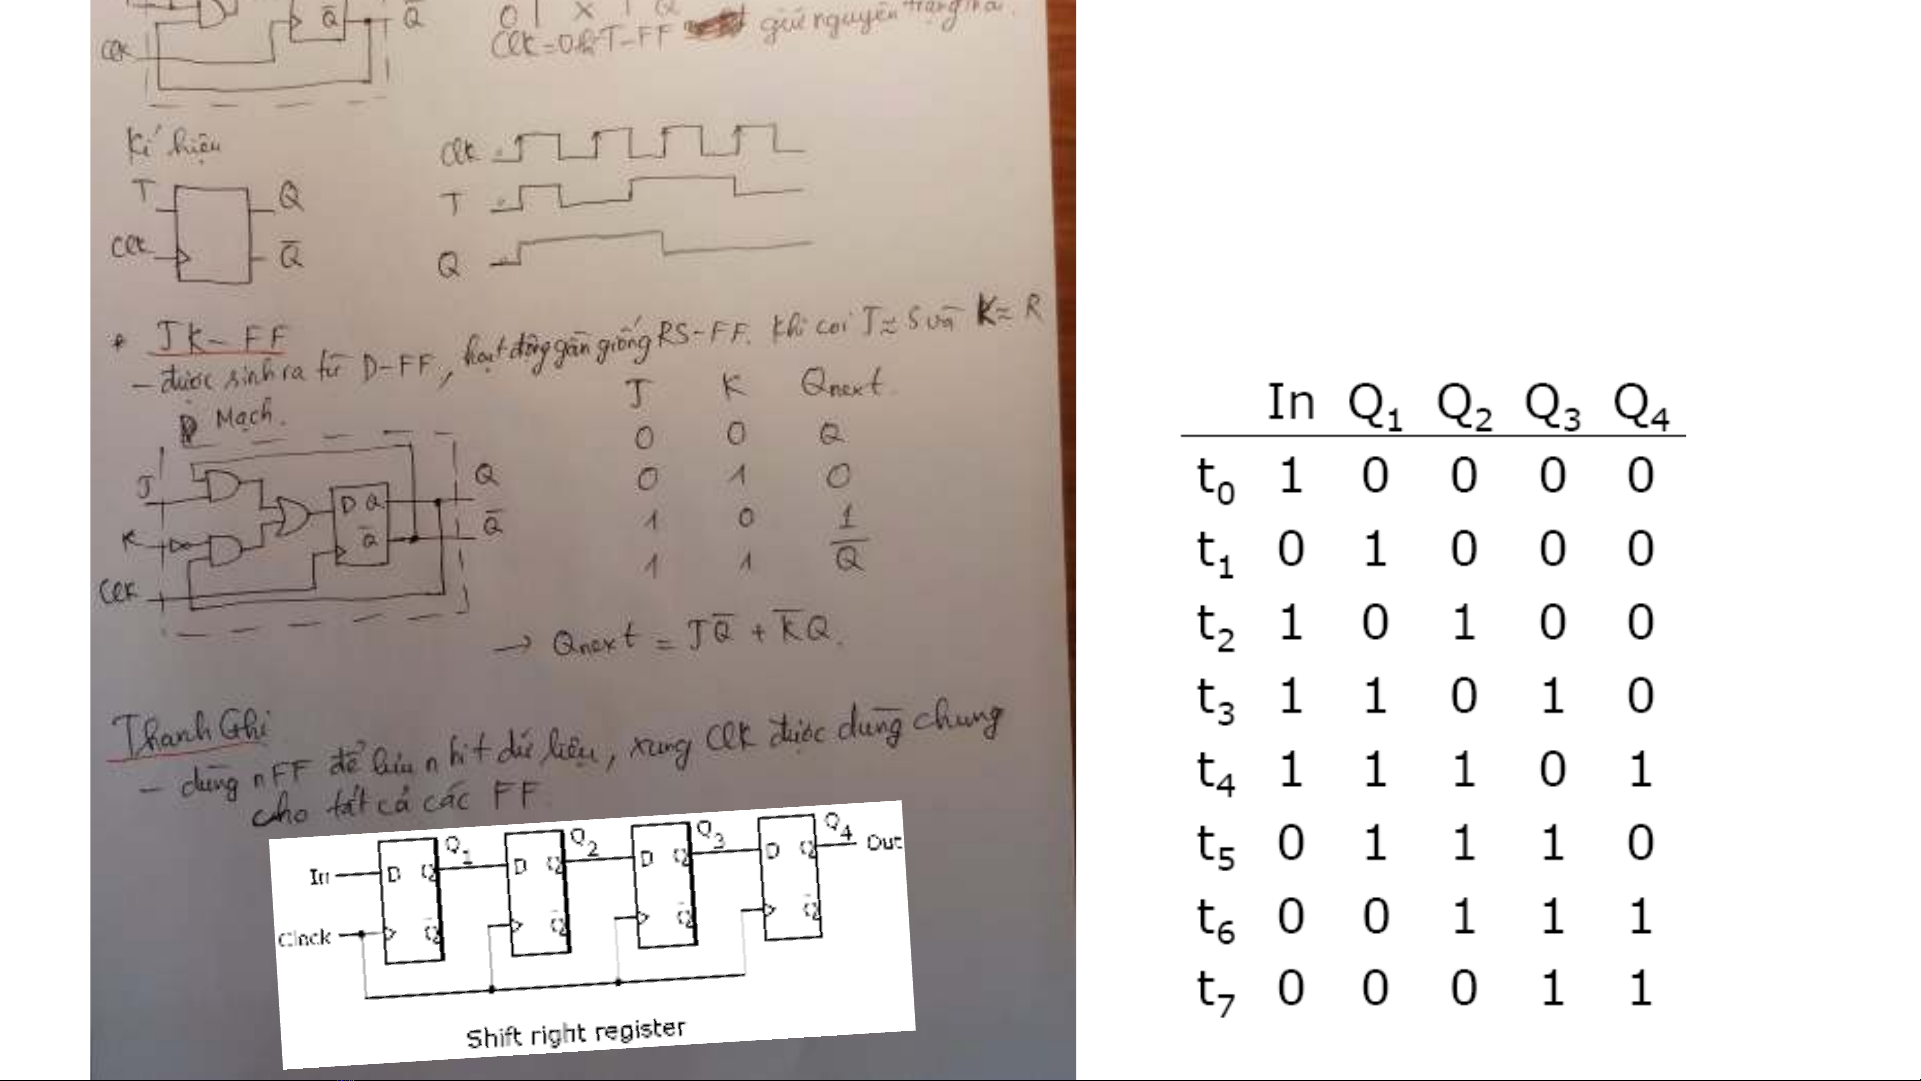 Q̄ Q̄
Clk
0 1 X 1 Q
Clk=0 T-FF giữ nguyên trạng thái.
Kí hiệu
T Q
Clk Q̄
Clk
T
Q
* JK-FF
- được sinh ra từ D-FF, hoạt động gần giống RS-FF. Khi coi J≈S và K≈R
Mạch.
J K Qnext
0 0 Q
0 1 0
1 0 1
1 1 Q̄
J D Q Q
K Q̄ Q̄
Clk
→ Qnext = JQ̄ + K̄Q.
Thanh Ghi
- dùng n FF để lưu n bit dữ liệu, xung Clk được dùng chung
cho tất cả các FF
Q1 Q2 Q3 Q4
In D Q D Q D Q D Q Out
Clock Q̄ Q̄ Q̄ Q̄
Shift right register
In Q1 Q2 Q3 Q4
t0 1 0 0 0 0
t1 0 1 0 0 0
t2 1 0 1 0 0
t3 1 1 0 1 0
t4 1 1 1 0 1
t5 0 1 1 1 0
t6 0 0 1 1 1
t7 0 0 0 1 1